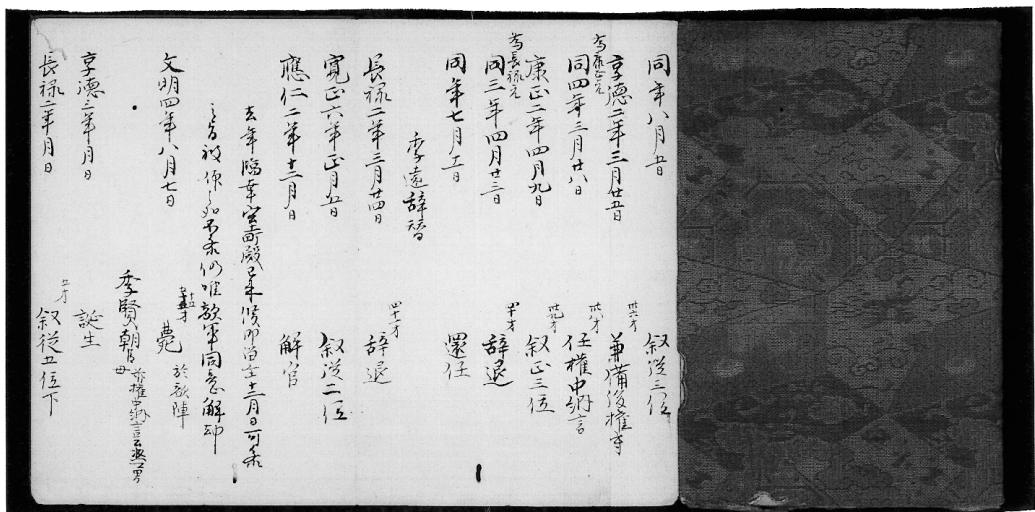 同年八月五日 叙従三位
享徳二年三月廿五日 卅六才 兼備後権守
為康正元
同四年三月廿八日 卅八才 任権中納言
康正二年四月九日 卅九才 叙正三位
為長禄元
同三年四月廿三日 四十才 辞退
同年七月 日 還任
季遠辞替
長禄二年三月廿四日 四十一才 辞退
寛正六年正月五日 叙従二位
應仁二年十二月 日 解官
去年臨幸室町殿已来候 十二月 日可参
之旨被 不参仍唯敵軍同意解却
文明四年八月七日 薨 於敵陣
季賢朝臣 母 権中納言
享徳三年月日 誕生
長禄二年月日 五才 叙従五位下